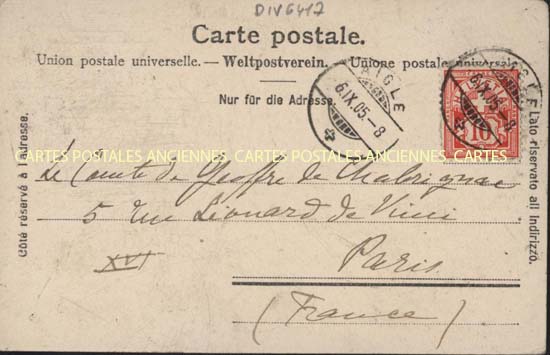 DIV6417
Carte postale.
Union postale universelle. — Weltpostverein. — Unione postale universale
Nur für die Adresse.
AIGLE
6.IX.05.–8
AIGLE
6.IX.05.–8
10
Côté réservé à l'adresse.
Lato riservato all Indirizzo.
CARTES POSTALES ANCIENNES CARTES POSTALES ANCIENNES CARTES POSTALES ANCIENNES
Le Comte de Geoffre de Chabrignac
5 rue Léonard de Vinci
XVI
Paris
(France)